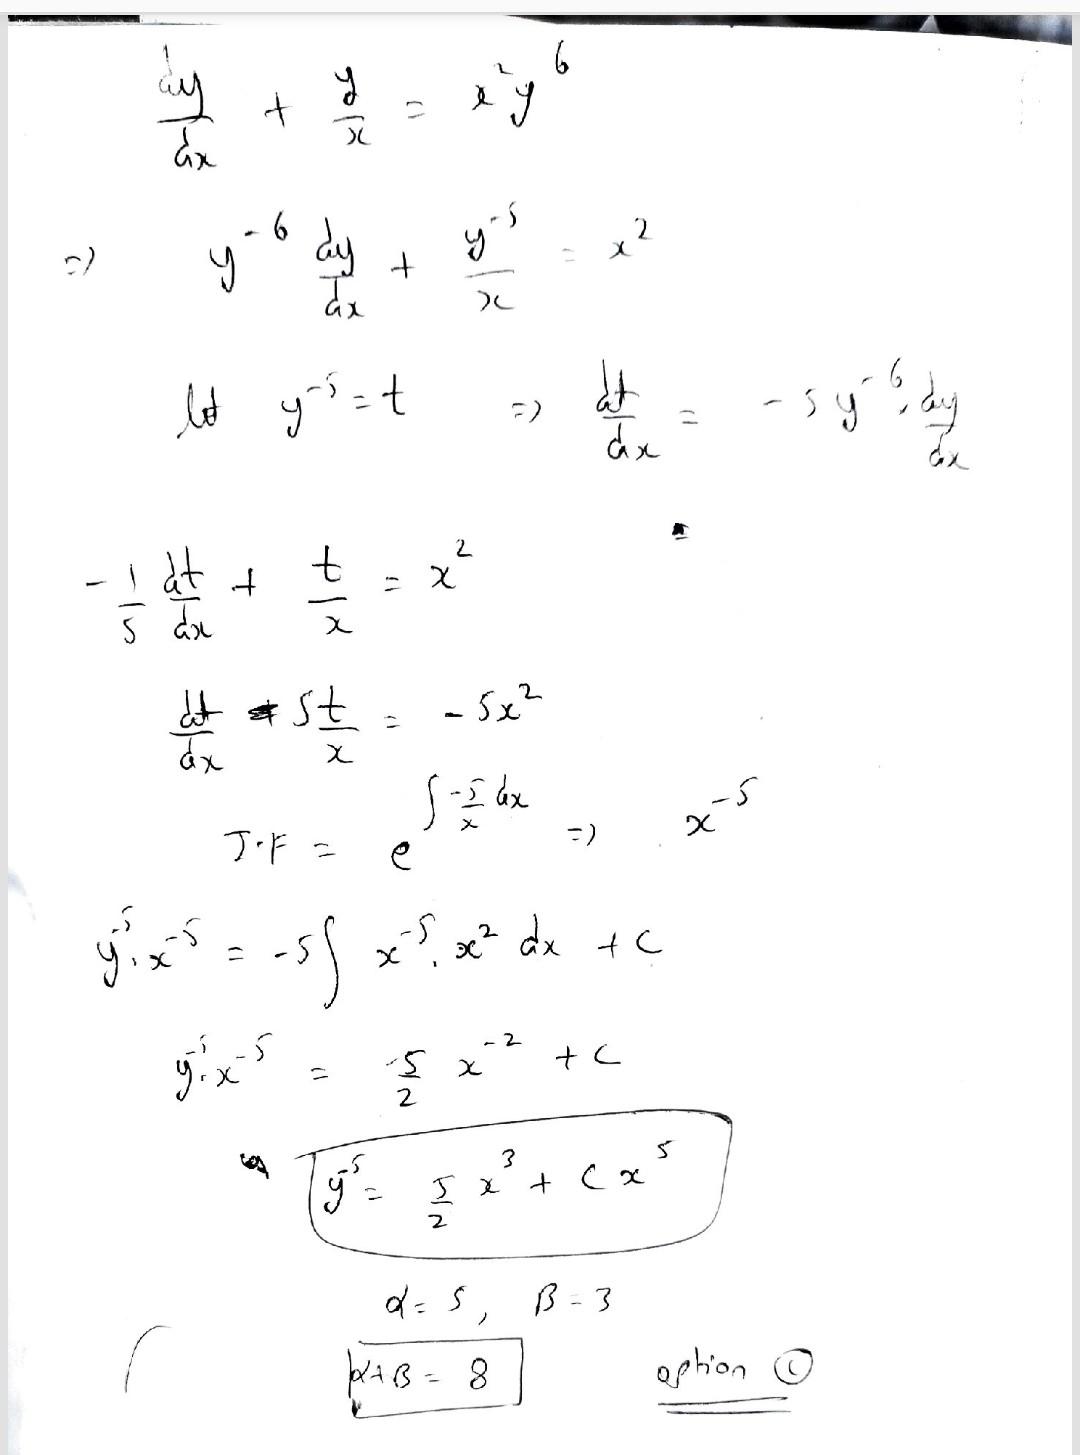 dy/dx + y/x = x²y⁶
=> y⁻⁶ dy/dx + y⁻⁵/x = x²
let y⁻⁵ = t => dt/dx = -5y⁻⁶. dy/dx
-1/5 dt/dx + t/x = x²
dt/dx - 5t/x = -5x²
I.F = e^∫-5/x dx => x⁻⁵
y⁻⁵.x⁻⁵ = -5∫ x⁻⁵. x² dx + c
y⁻⁵.x⁻⁵ = -5/2 x⁻² + c
y⁻⁵ = 5/2 x³ + c x⁵
α = 5, β = 3
α+β = 8 option ©